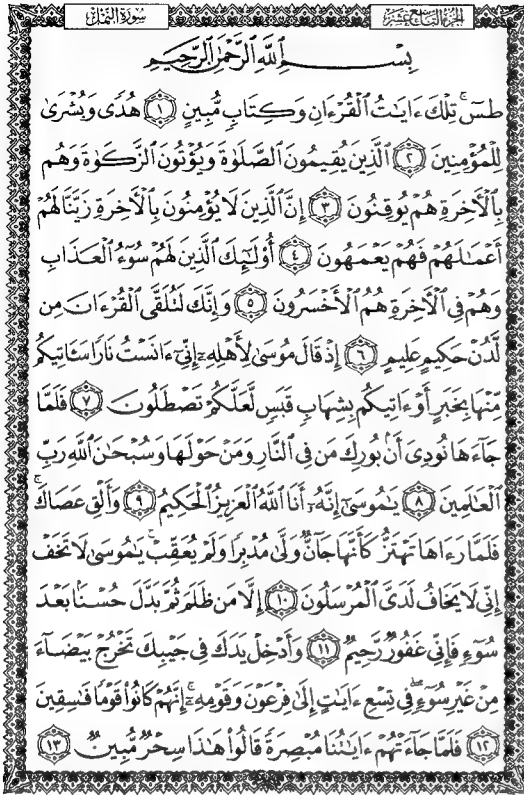 سُورَةُ النَّمْلِ
الجُزْءُ التَّاسِعَ عَشَرَ
بِسْمِ ٱللَّهِ ٱلرَّحْمَٰنِ ٱلرَّحِيمِ
طسٓۚ تِلْكَ ءَايَٰتُ ٱلْقُرْءَانِ وَكِتَابٍ مُّبِينٍ ۝١ هُدًى وَبُشْرَىٰ
لِلْمُؤْمِنِينَ ۝٢ ٱلَّذِينَ يُقِيمُونَ ٱلصَّلَوٰةَ وَيُؤْتُونَ ٱلزَّكَوٰةَ وَهُم
بِٱلْءَاخِرَةِ هُمْ يُوقِنُونَ ۝٣ إِنَّ ٱلَّذِينَ لَا يُؤْمِنُونَ بِٱلْءَاخِرَةِ زَيَّنَّا لَهُمْ
أَعْمَٰلَهُمْ فَهُمْ يَعْمَهُونَ ۝٤ أُو۟لَٰٓئِكَ ٱلَّذِينَ لَهُمْ سُوٓءُ ٱلْعَذَابِ
وَهُمْ فِى ٱلْءَاخِرَةِ هُمُ ٱلْأَخْسَرُونَ ۝٥ وَإِنَّكَ لَتُلَقَّى ٱلْقُرْءَانَ مِن
لَّدُنْ حَكِيمٍ عَلِيمٍ ۝٦ إِذْ قَالَ مُوسَىٰ لِأَهْلِهِۦٓ إِنِّىٓ ءَانَسْتُ نَارًا سَـَٔاتِيكُم
مِّنْهَا بِخَبَرٍ أَوْ ءَاتِيكُم بِشِهَابٍ قَبَسٍ لَّعَلَّكُمْ تَصْطَلُونَ ۝٧ فَلَمَّا
جَآءَهَا نُودِىَ أَنۢ بُورِكَ مَن فِى ٱلنَّارِ وَمَنْ حَوْلَهَا وَسُبْحَٰنَ ٱللَّهِ رَبِّ
ٱلْعَٰلَمِينَ ۝٨ يَٰمُوسَىٰٓ إِنَّهُۥٓ أَنَا ٱللَّهُ ٱلْعَزِيزُ ٱلْحَكِيمُ ۝٩ وَأَلْقِ عَصَاكَۚ
فَلَمَّا رَءَاهَا تَهْتَزُّ كَأَنَّهَا جَآنٌّ وَلَّىٰ مُدْبِرًا وَلَمْ يُعَقِّبْۚ يَٰمُوسَىٰ لَا تَخَفْ
إِنِّى لَا يَخَافُ لَدَىَّ ٱلْمُرْسَلُونَ ۝١٠ إِلَّا مَن ظَلَمَ ثُمَّ بَدَّلَ حُسْنًۢا بَعْدَ
سُوٓءٍ فَإِنِّى غَفُورٌ رَّحِيمٌ ۝١١ وَأَدْخِلْ يَدَكَ فِى جَيْبِكَ تَخْرُجْ بَيْضَآءَ
مِنْ غَيْرِ سُوٓءٍۖ فِى تِسْعِ ءَايَٰتٍ إِلَىٰ فِرْعَوْنَ وَقَوْمِهِۦٓۚ إِنَّهُمْ كَانُوا۟ قَوْمًا فَٰسِقِينَ
۝١٢ فَلَمَّا جَآءَتْهُمْ ءَايَٰتُنَا مُبْصِرَةً قَالُوا۟ هَٰذَا سِحْرٌ مُّبِينٌ ۝١٣